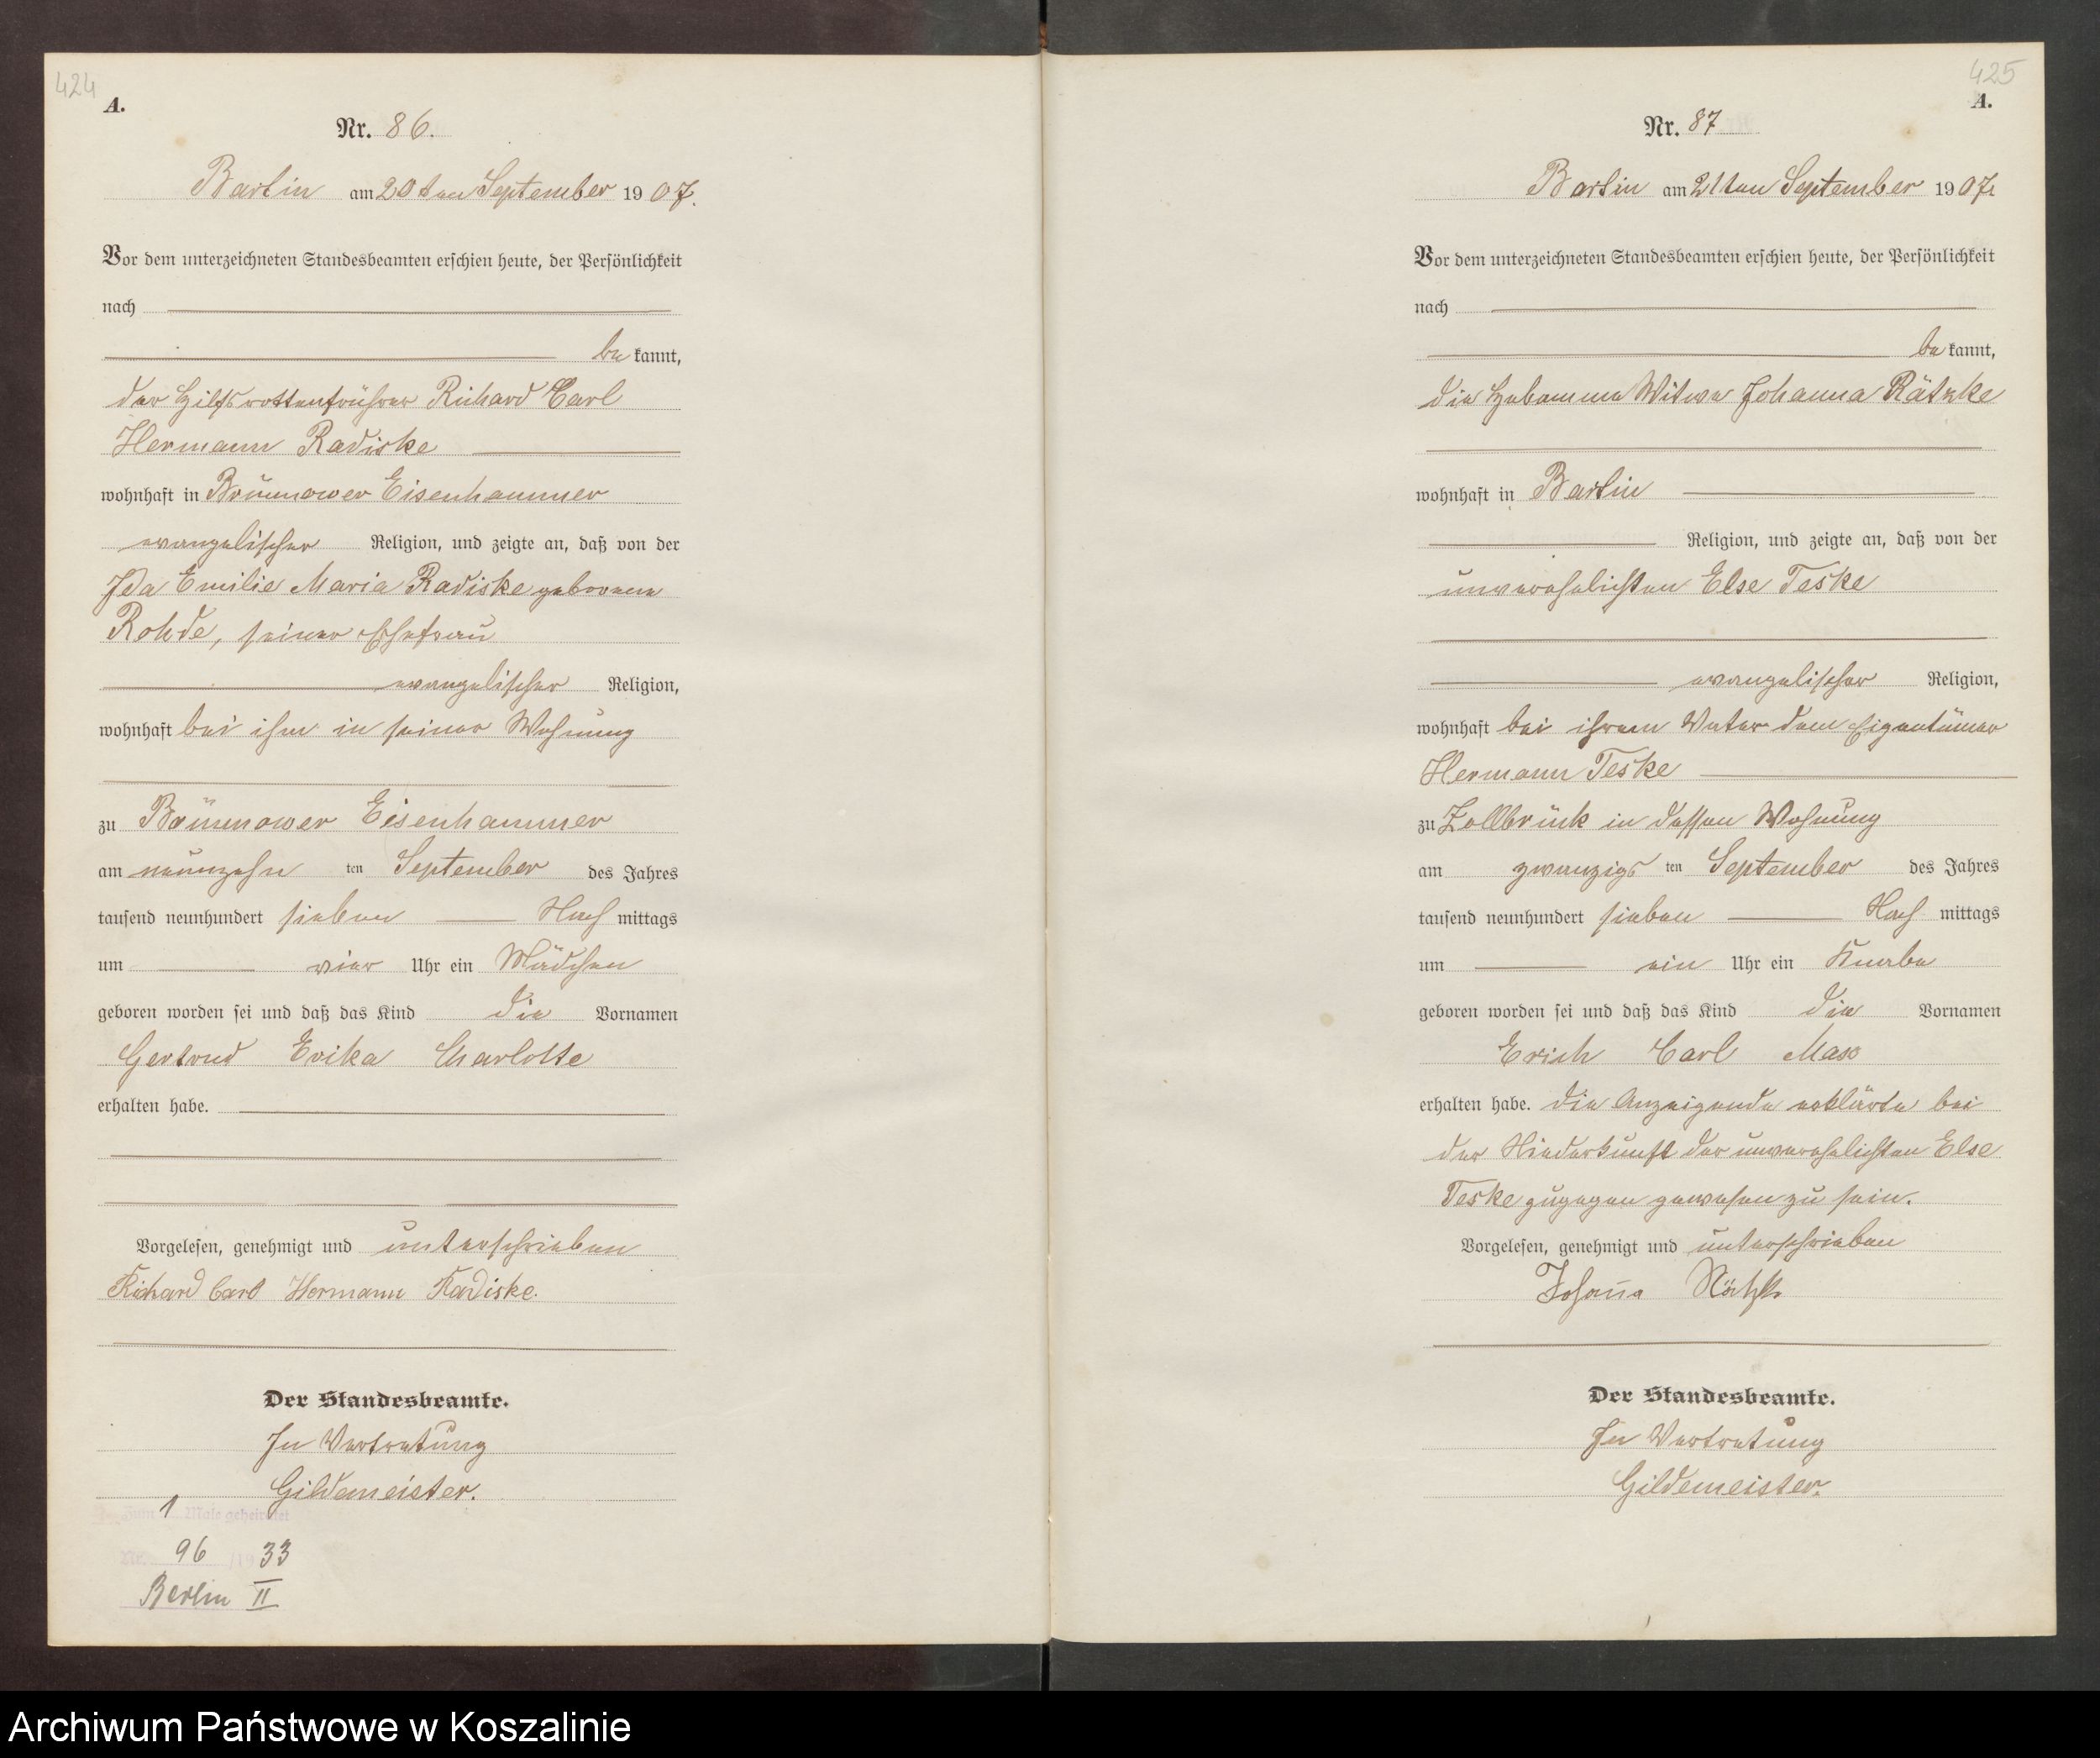 424
A.
Nr. 86.
Bartin am 20ten September 1907.
Vor dem unterzeichneten Standesbeamten erschien heute, der Persönlichkeit
nach
be kannt,
der Hilfsrottenführer Richard Carl
Hermann Radiske
wohnhaft in Brünnower Eisenhammer
evangelischer Religion, und zeigte an, daß von der
Ida Emilie Maria Radiske geborene
Rohde, seiner Ehefrau
evangelischer Religion,
wohnhaft bei ihm in seiner Wohnung
zu Brünnower Eisenhammer
am neunzehn ten September des Jahres
tausend neunhundert sieben Nach mittags
um vier Uhr ein Mädchen
geboren worden sei und daß das Kind die Vornamen
Gertrud Erika Charlotte
erhalten habe.
Vorgelesen, genehmigt und unterschrieben
Richard Carl Hermann Radiske.
Der Standesbeamte.
In Vertretung
Gildemeister.
Zum 1 Male geheiratet
Nr. 96 /19 33
Berlin II
425
A.
Nr. 87
Bartin am 21ten September 1907.
Vor dem unterzeichneten Standesbeamten erschien heute, der Persönlichkeit
nach
be kannt,
die Hebamme Witwe Johanna Rätzke
wohnhaft in Bartin
Religion, und zeigte an, daß von der
unverehelichten Else Teske
evangelischer Religion,
wohnhaft bei ihrem Vater dem Eigentümer
Hermann Teske
zu Zollbrück in dessen Wohnung
am zwanzigs ten September des Jahres
tausend neunhundert sieben Nach mittags
um ein Uhr ein Knabe
geboren worden sei und daß das Kind die Vornamen
Erich Carl Max
erhalten habe. Die Anzeigende erklärte bei
der Niederkunft der unverehelichten Else
Teske zugegen gewesen zu sein.
Vorgelesen, genehmigt und unterschrieben
Johanna Rätzke
Der Standesbeamte.
In Vertretung
Gildemeister.
Archiwum Państwowe w Koszalinie